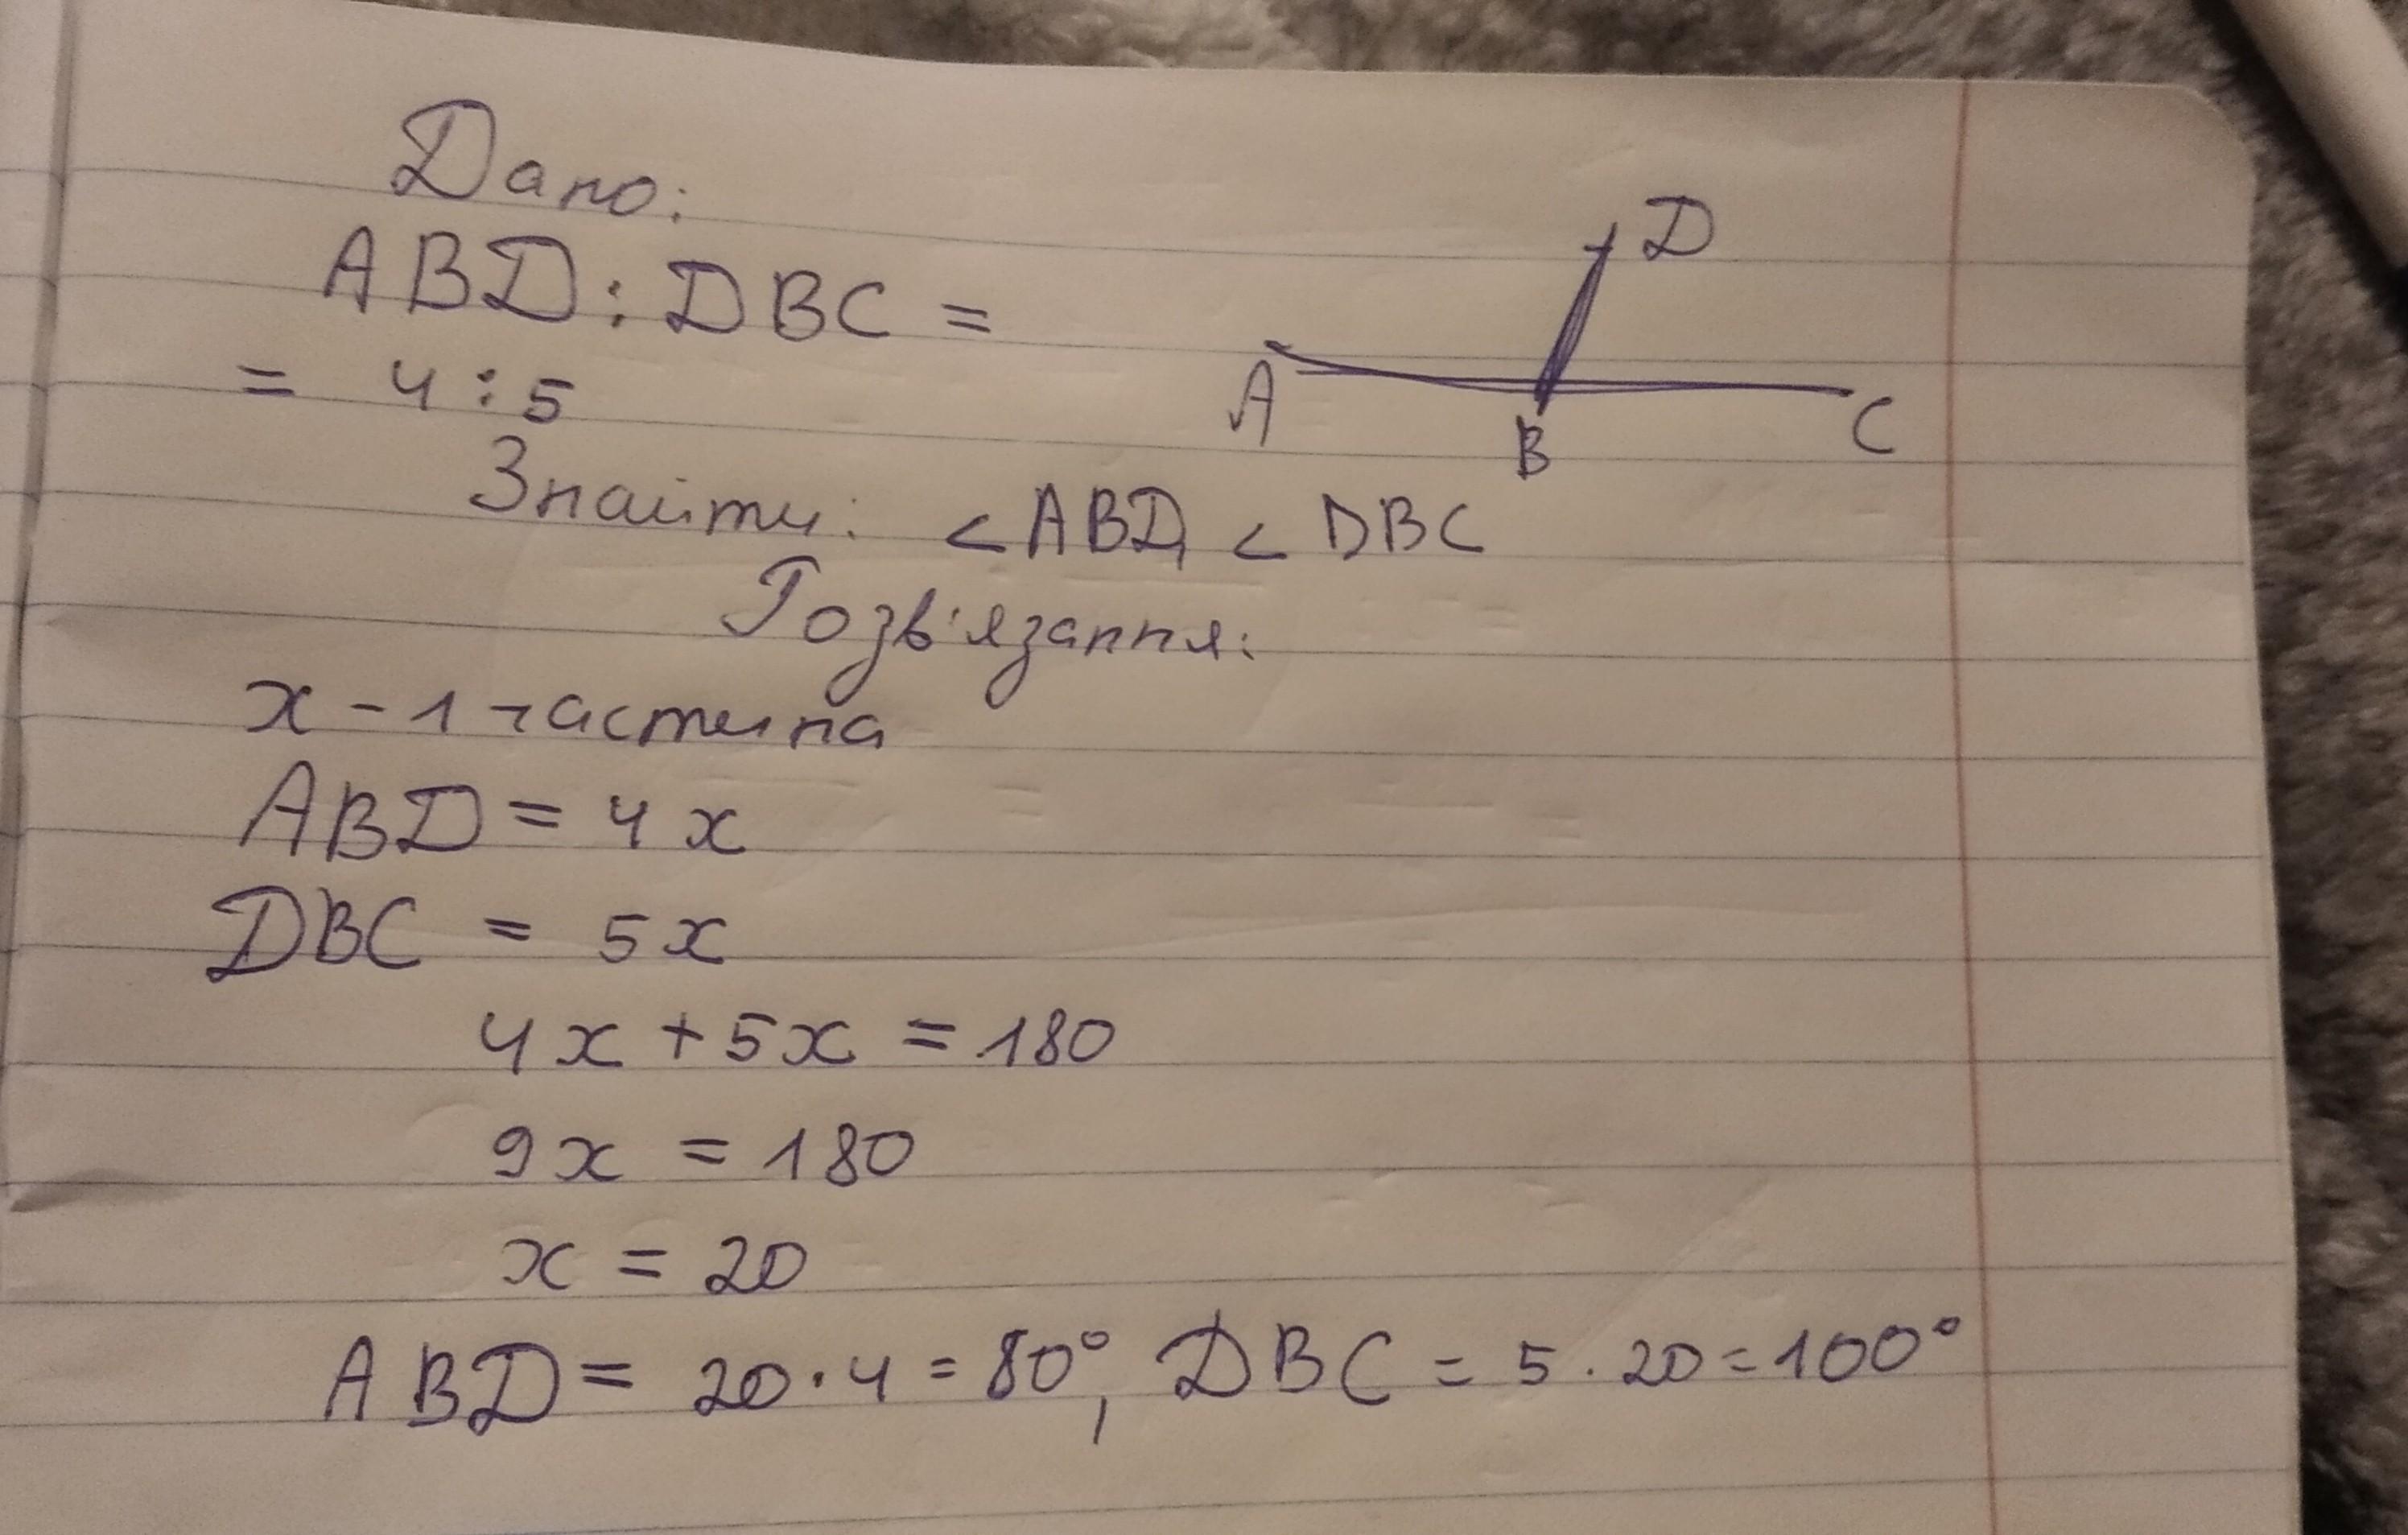 Дано:
ABD : DBC =
= 4 : 5
D
A
B
C
Знайти: < ABD, < DBC
Розв'язання:
x - 1 частина
ABD = 4x
DBC = 5x
4x + 5x = 180
9x = 180
x = 20
ABD = 20 · 4 = 80°, DBC = 5 · 20 = 100°